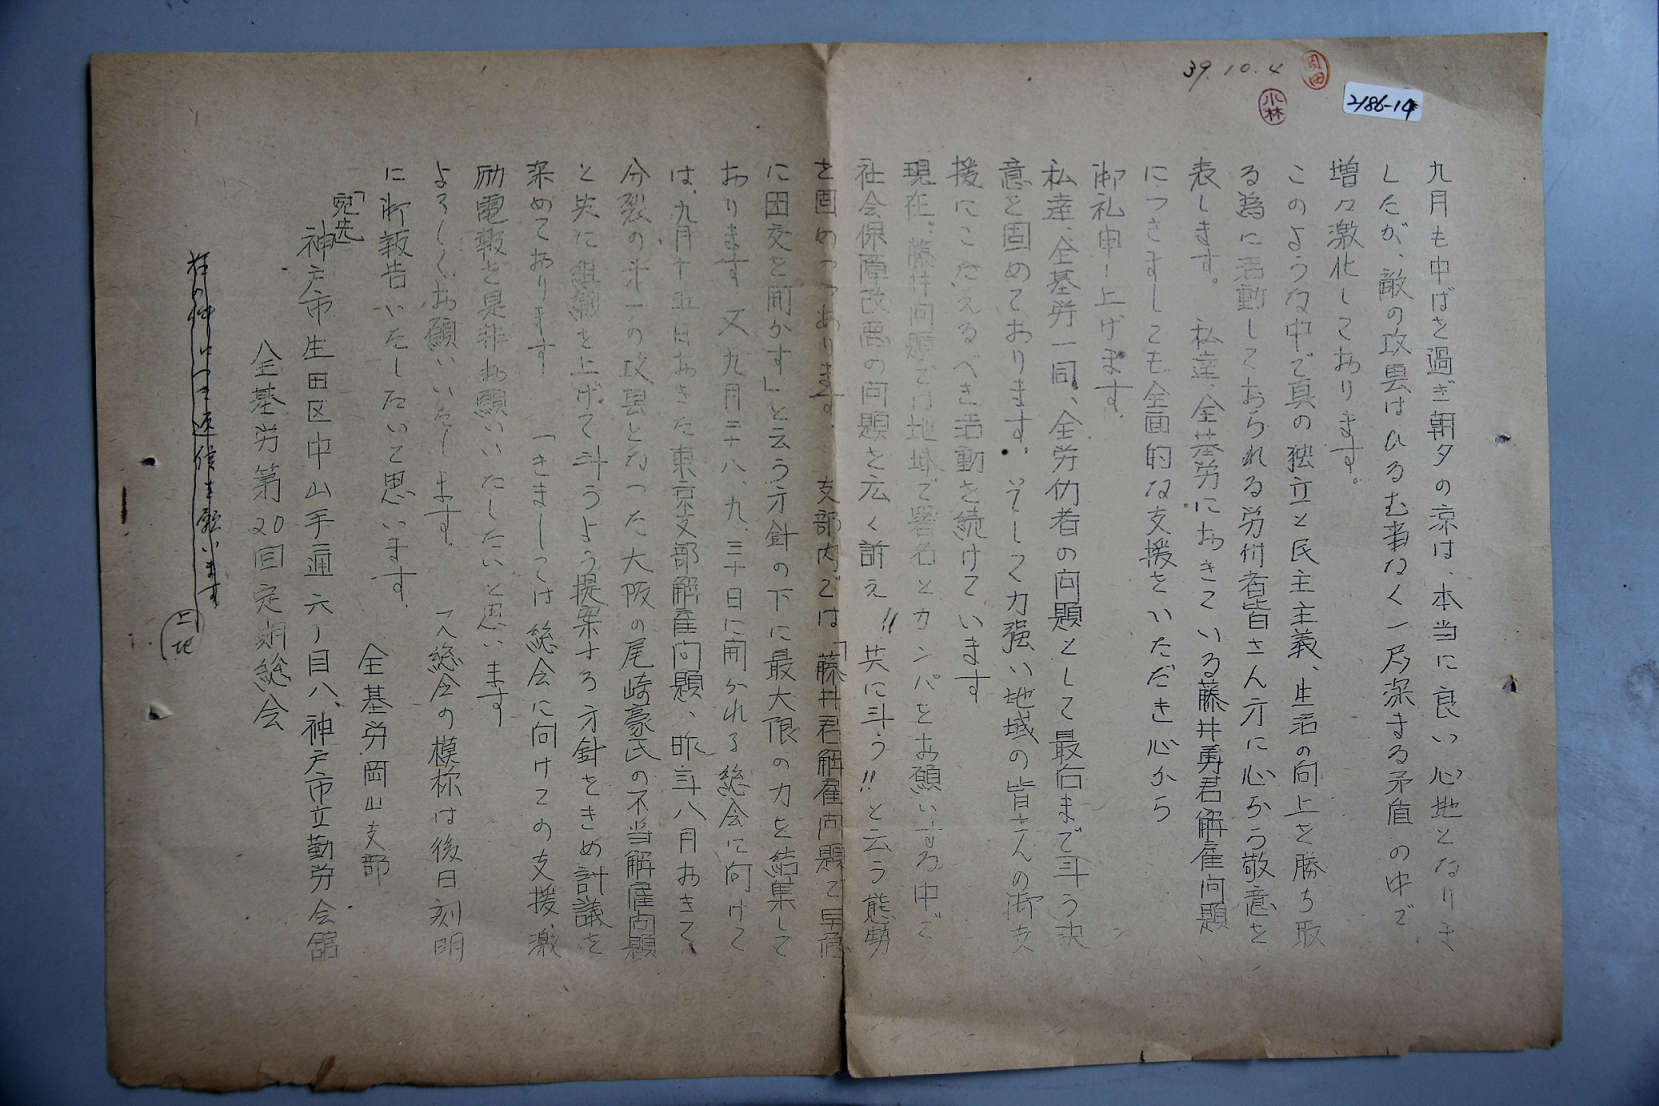 39.10.4
岡田
小林
2186-14
九月も中ばを過ぎ朝夕の涼は、本当に良い心地となりま
したが、敵の攻撃はひるむ事なく一層深まる矛盾の中で
増々激化しております。
このような中で真の独立と民主主義、生活の向上を勝ち取
る為に活動しておられる労仂者皆さん方に心から敬意を
表します。私達、全基労におきている藤井勇君解雇問題
につきましても全面的な支援をいただき心から
御礼申し上げます。
私達、全基労一同、全労仂者の問題として最后まで斗う決
意を固めております。そして力強い地域の皆さんの御支
援にこたえるべき活動を続けています
現在、藤井問題では地域で署名とカンパをお願いする中で
社会保障改悪の問題を広く訴え!!共に斗う!!と云う態勢
を固めつつあります。支部内では「藤井君解雇問題で早急
に団交を開かす」と云う方針の下に最大限の力を結集して
おります 又九月二十八、九、三十日に開かれる総会に向けて
は、九月十五日おきた東京支部解雇問題、昨年八月おきて
分裂の第一の攻撃となった大阪の尾崎豪氏の不当解雇問題
と共に組織を上げて斗うよう提案する方針をきめ討議を
深めております 「つきましては総会に向けての支援、激
励電報を是非お願いいたしたいと思います
よろしくお願いいたします。 又総会の模様は後日刻明
に御報告いたしたいと思います。
全基労岡山支部
「宛先
神戸市生田区中山手通六丁目八、神戸市立勤労会館
全基労第20回定期総会